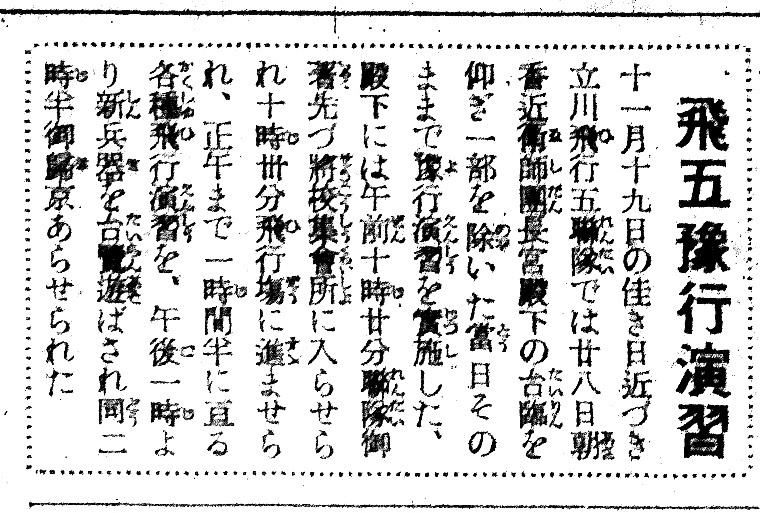 飛五豫行演習
十一月十九日の佳き日近づき
立川飛行五聯隊では廿八日朝
香近衛師團長宮殿下の台臨を
仰ぎ一部を除いた當日その
ままで豫行演習を實施した、
殿下には午前十時廿分聯隊御
著先づ將校集會所に入らせら
れ十時卅分飛行塲に進ませら
れ、正午まで一時間半に亘る
各種飛行演習を、午後一時よ
り新兵器を台覽遊ばされ同二
時半御歸京あらせられた